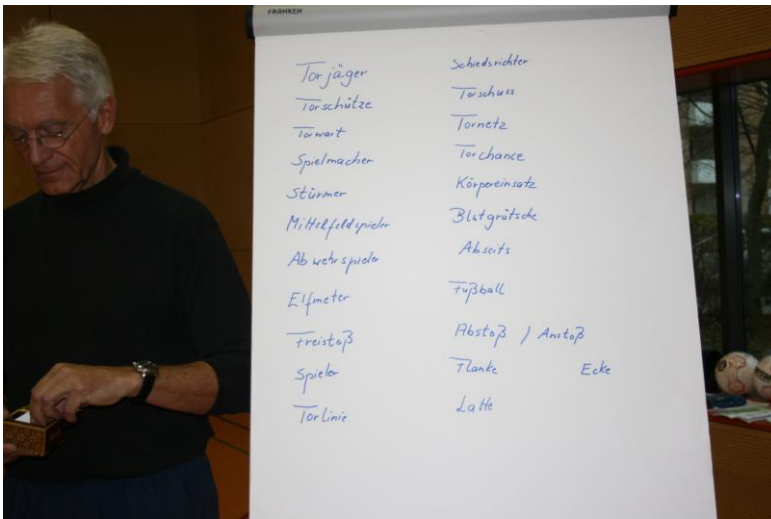 FRANKEN
Torjäger
Torschütze
Torwart
Spielmacher
Stürmer
Mittelfeldspieler
Abwehrspieler
Elfmeter
Freistoß
Spieler
Torlinie
Schiedsrichter
Torschuss
Tornetz
Torchance
Körpereinsatz
Blutgrätsche
Abseits
Fußball
Abstoß / Anstoß
Flanke Ecke
Latte